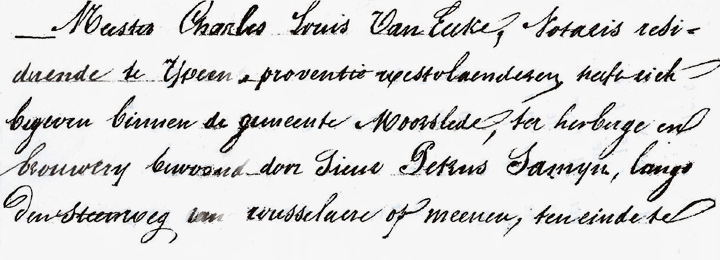 Meester Charles Louis Van Eecke, Notaris resi-
deerende te Ypren, proventie westvlaenderen, heeft zich
begeven binnen de gemeente Moorslede, ter herberge en
brouwery bewoond door Sieur Petrus Samyn, langs
den Steenweg van rousselaere op meenen, ten einde te